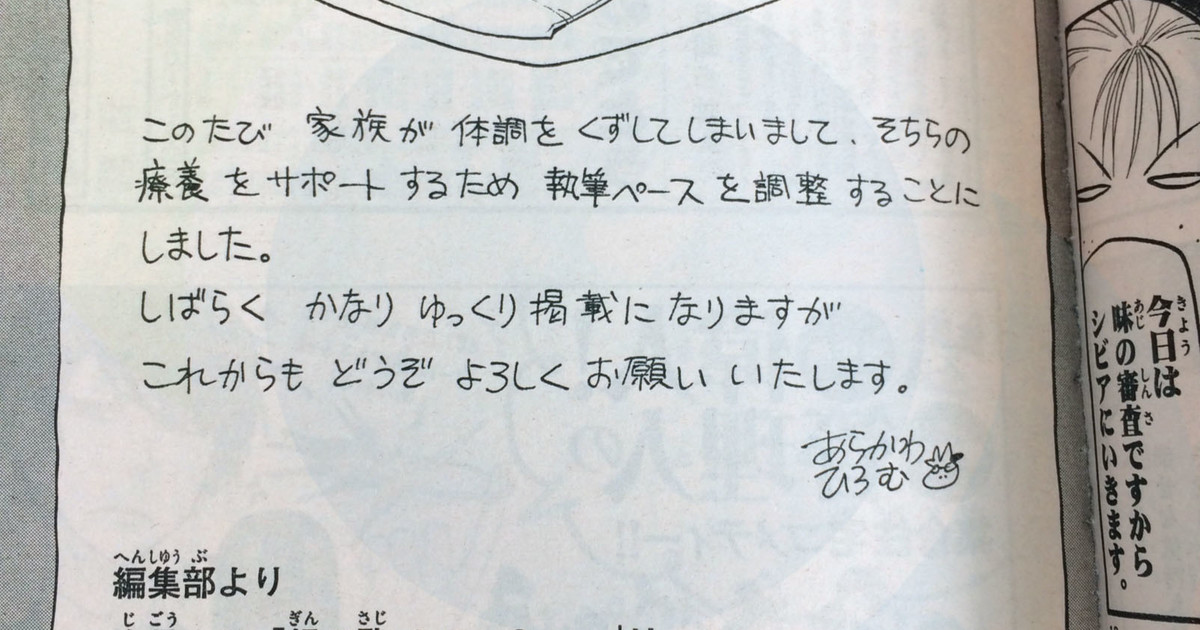 このたび 家族が 体調を くずしてしまいまして、そちらの
療養 を サポート するため 執筆ペース を 調整 することに
しました。
しばらく かなり ゆっくり 掲載に なりますが
これからも どうぞ よろしく お願い いたします。
あらかわ
ひろむ
へんしゅうぶ
編集部より
じごう ぎん さじ
きょう
今日は
あじ しんさ
味の審査ですから
シビアにいきます。